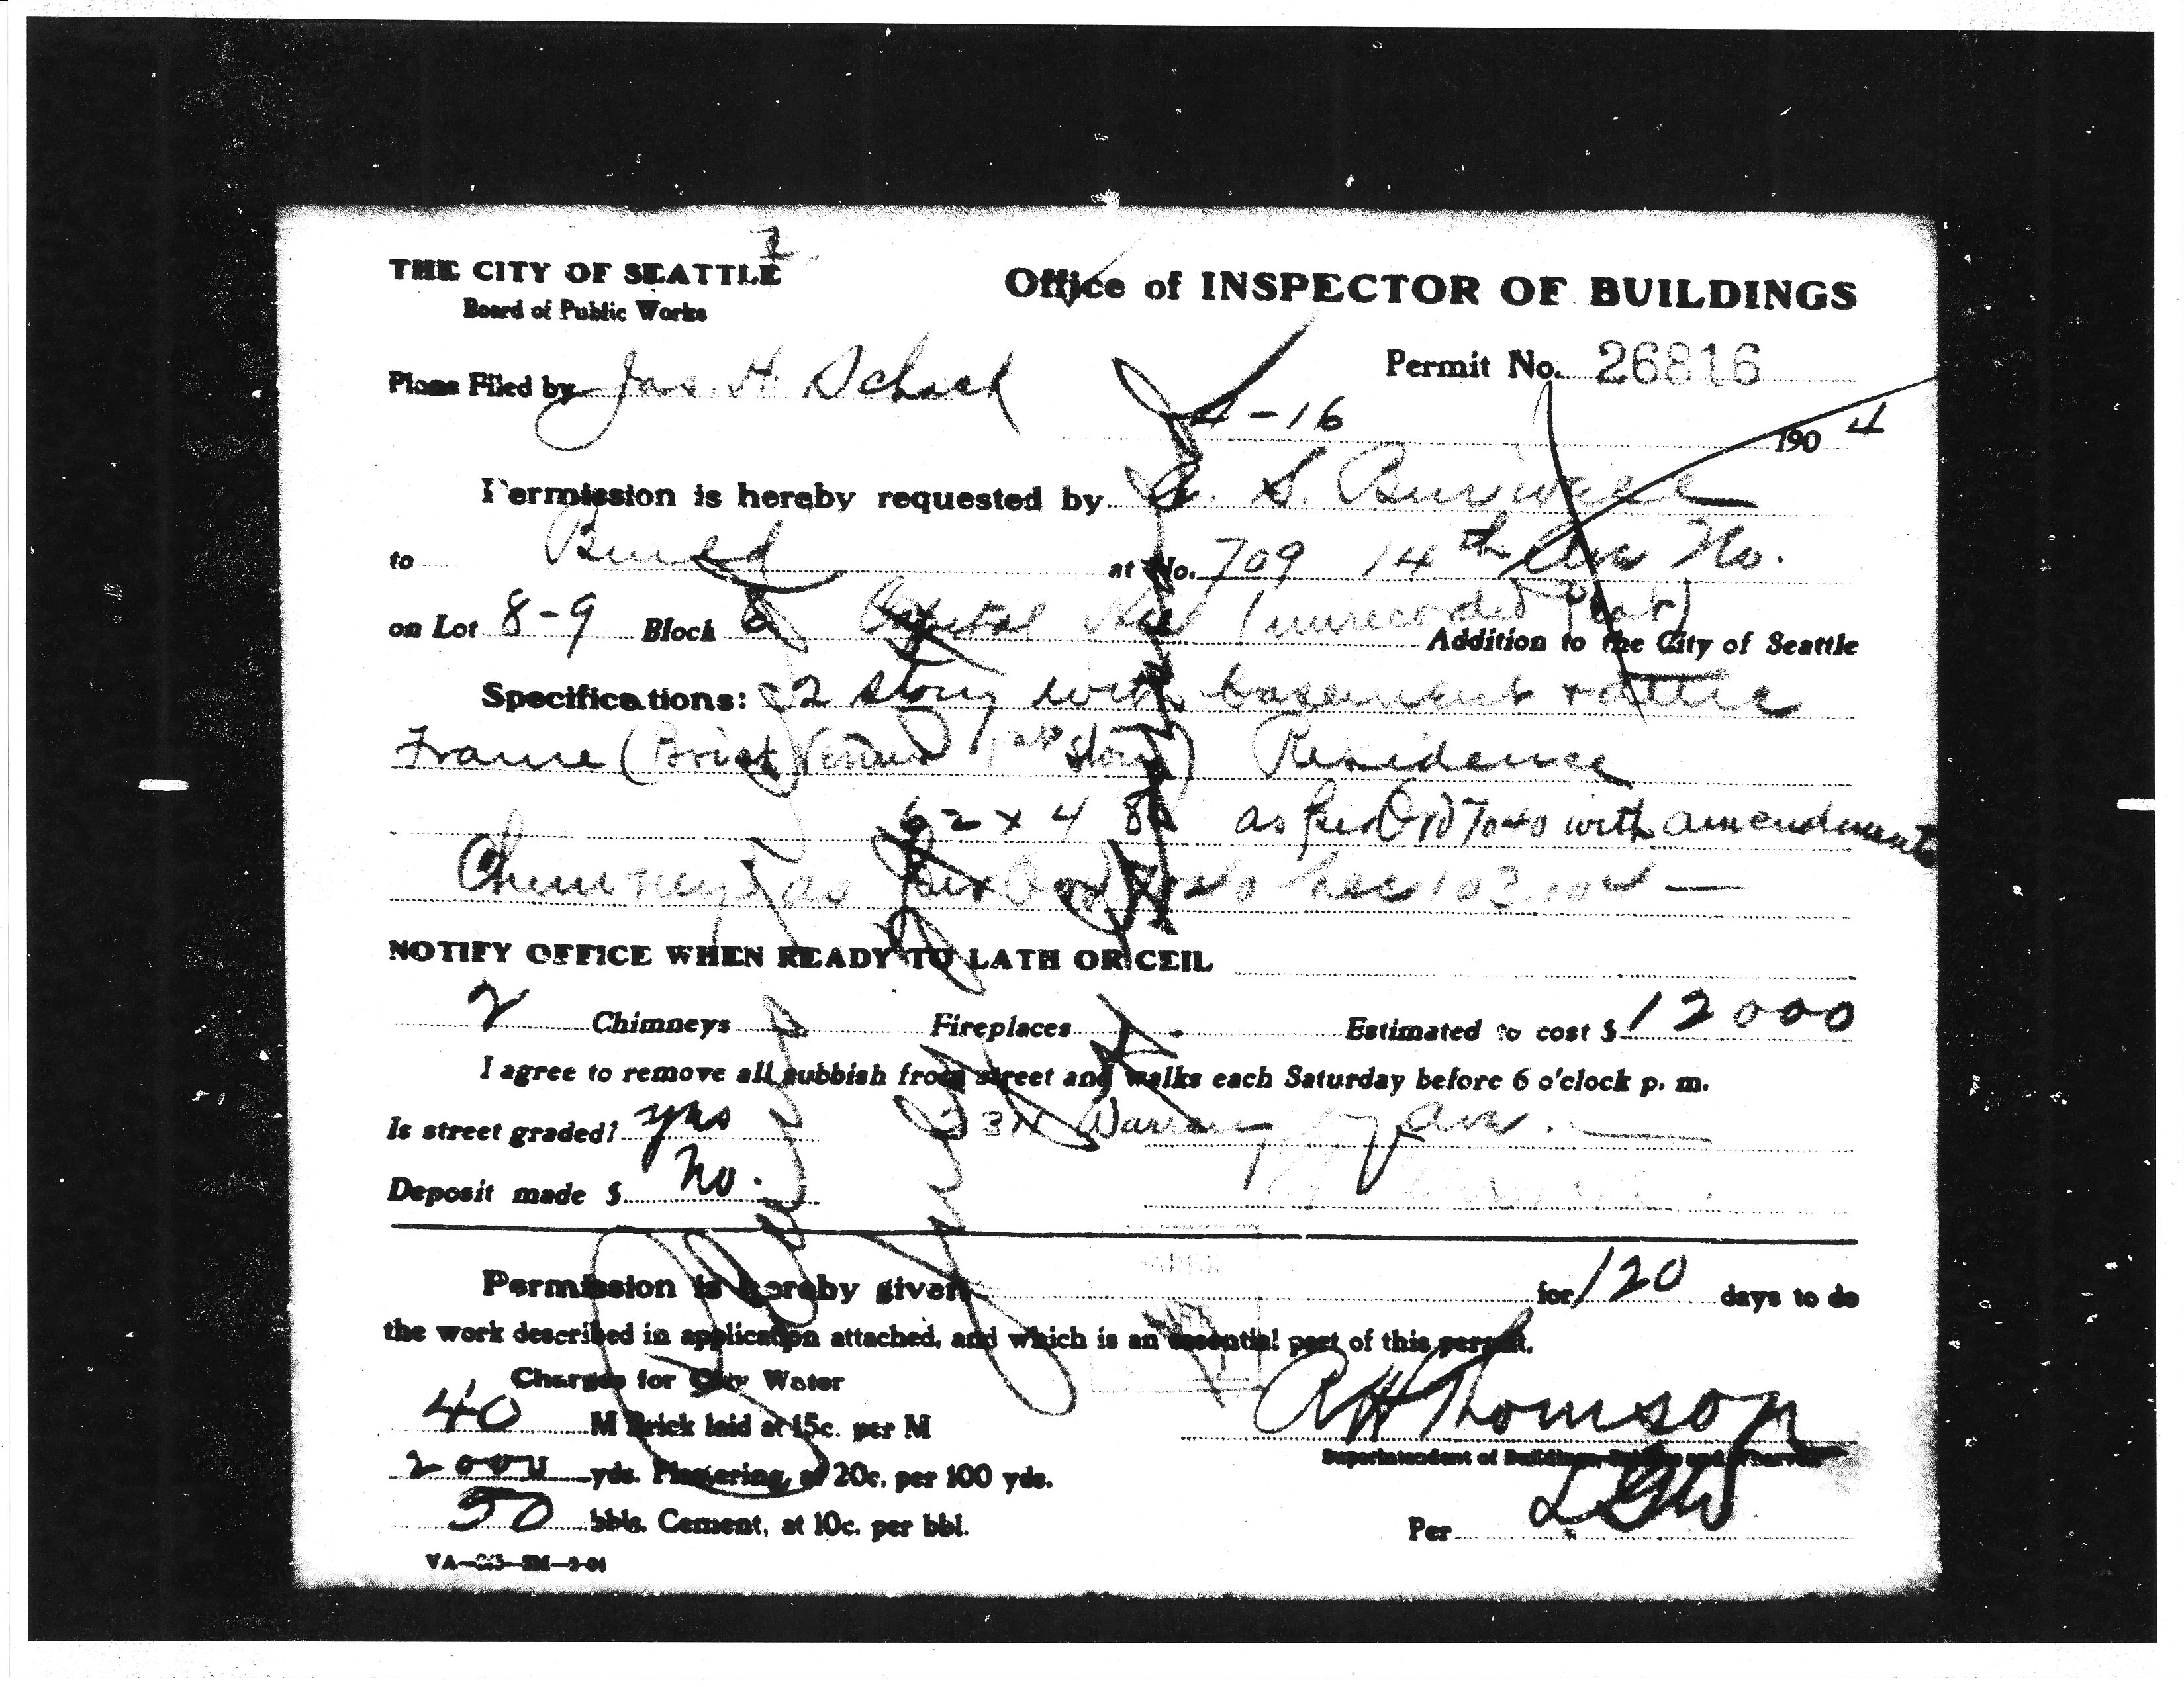 THE CITY OF SEATTLE
Board of Public Works
Office of INSPECTOR OF BUILDINGS
Plans Filed by Jas. H. Schack
Permit No. 26816
4-16 1904
Permission is hereby requested by A. S. Burwell
to Build at No. 709 14th Ave No.
on Lot 8-9 Block 8 Capital Hill (unrecorded Plat) Addition to the City of Seattle
Specifications: 2 story with basement + attic
Frame (Brick Veneer 1st story) Residence
62 x 48 as per Ord 7040 with amendments
Chimneys as per Ord 7040 Sec 103.104 —
NOTIFY OFFICE WHEN READY TO LATH OR CEIL
2 Chimneys Fireplaces Estimated to cost $ 12000
I agree to remove all rubbish from street and walks each Saturday before 6 o'clock p. m.
Is street graded? yes Warren Ave.
Deposit made $ No.
Permission is hereby given for 120 days to do
the work described in application attached, and which is an essential part of this permit.
Charges for City Water
40 M Brick laid at 15c. per M
R H Thomson
2000 yds. Plastering, at 20c. per 100 yds.
Superintendent of Buildings, Bridges and Wharves
50 bbls. Cement, at 10c. per bbl.
Per